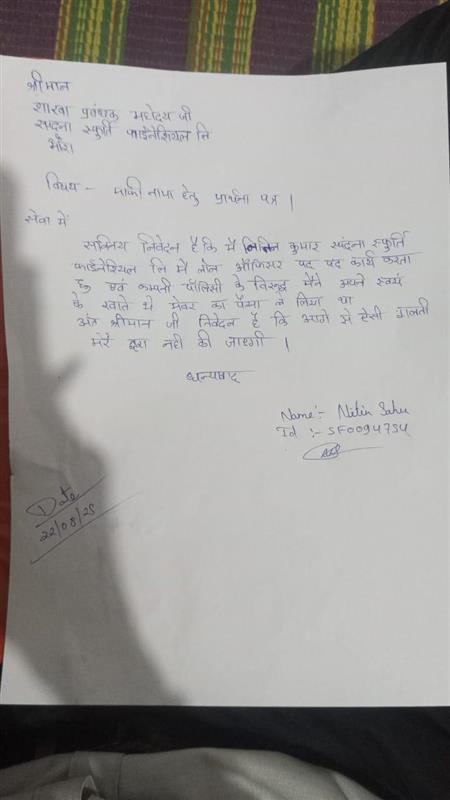 श्रीमान
शाखा प्रबंधक महोदय जी
स्पंदना स्फूर्ति फाईनेंसियल लि
विषय - माफी नामा हेतु प्रार्थना पत्र ।
सेवा में
सविनय निवेदन है कि मैं नितिन कुमार स्पंदना स्फुर्ति
फाईनेंसियल लि में लोन ऑफिसर पद पद कार्य करता
हु एवं कम्पनी पॉलिसी के विरुद्ध मैंने अपने स्वयं
के खाते में मेंबर का पैसा ले लिया था
अतः श्रीमान जी निवेदन है कि आगे से ऐसी गलती
मेरे द्वारा नही की जाएगी ।
धन्यवाद
Name:- Nitin Sahu
Id :- SF0094734
Date
22/08/25